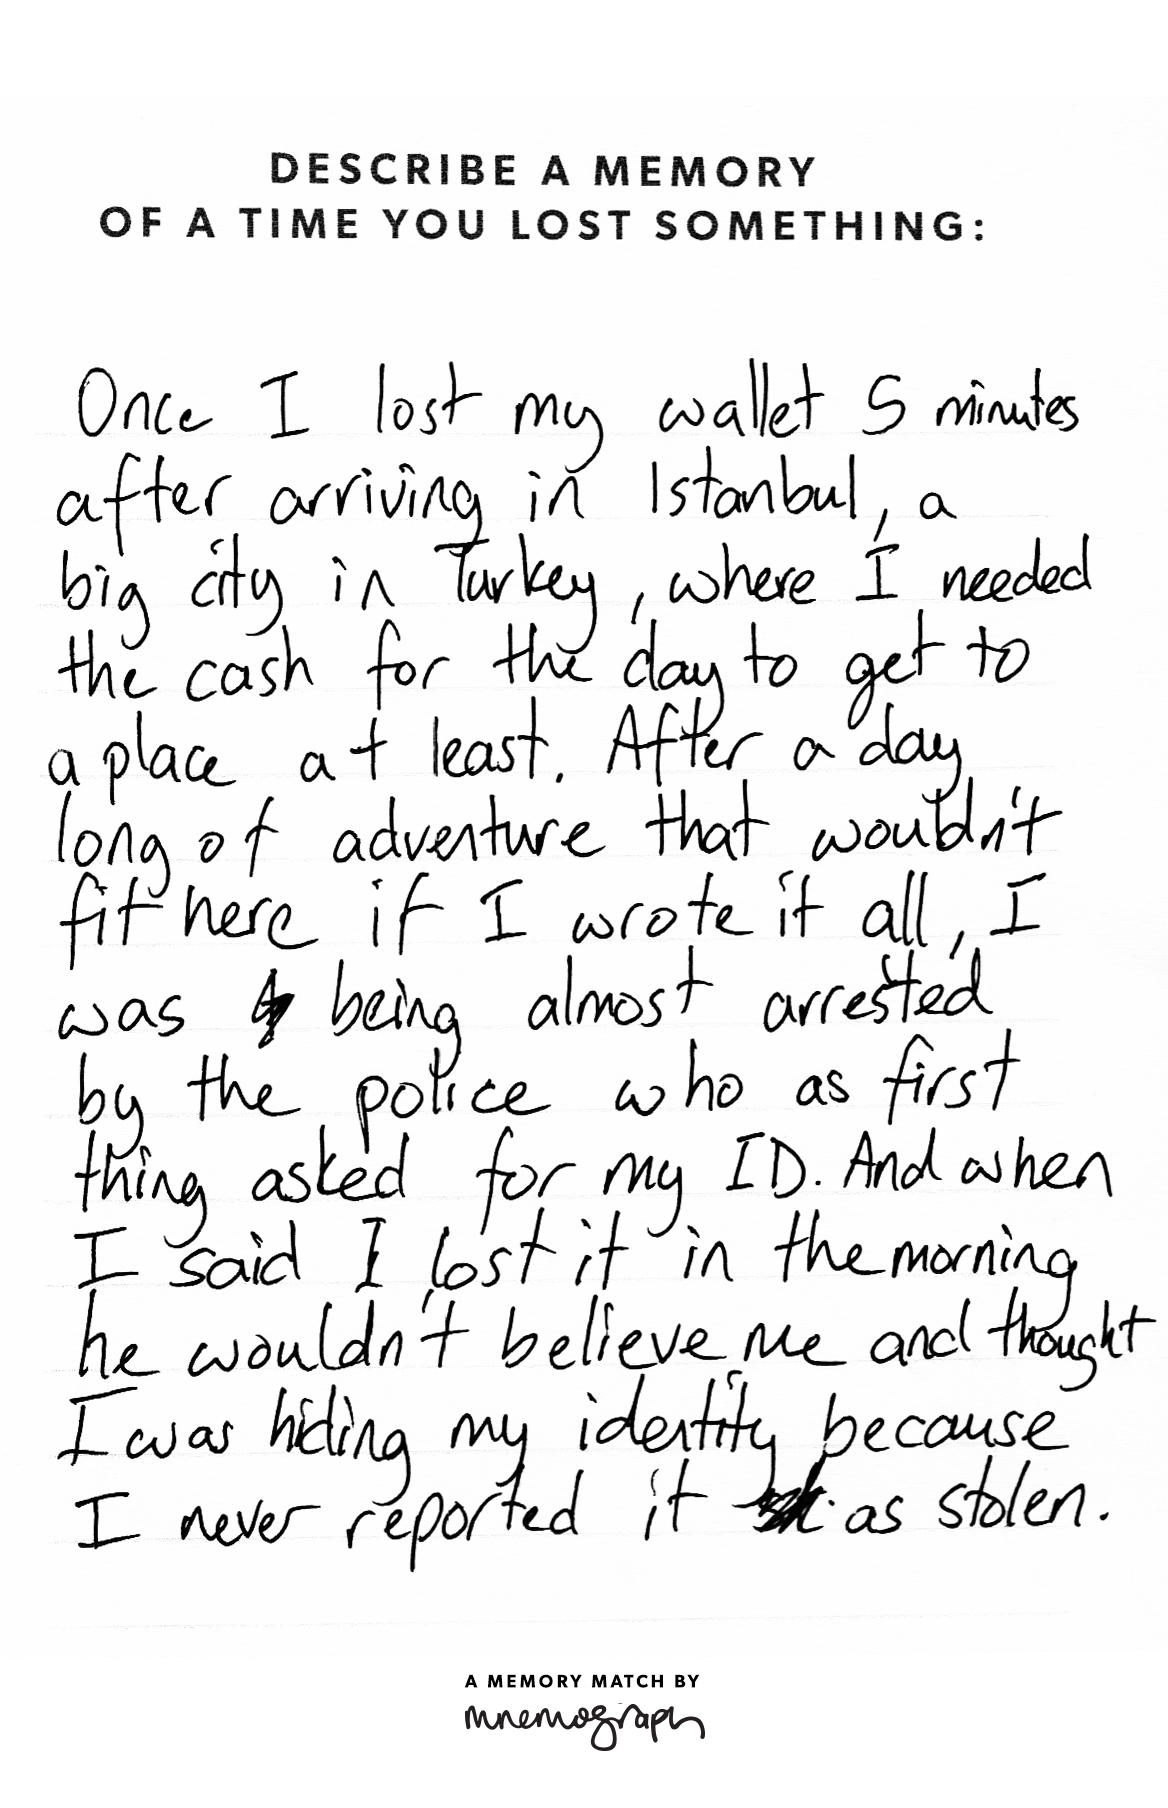 DESCRIBE A MEMORY
OF A TIME YOU LOST SOMETHING:
Once I lost my wallet 5 minutes
after arriving in Istanbul, a
big city in Turkey, where I needed
the cash for the day to get to
a place at least. After a day
long of adventure that wouldn't
fit here if I wrote it all, I
was being almost arrested
by the police who as first
thing asked for my ID. And when
I said I lost it in the morning
he wouldn't believe me and thought
I was hiding my identity because
I never reported it as stolen.
A MEMORY MATCH BY
mnemograph